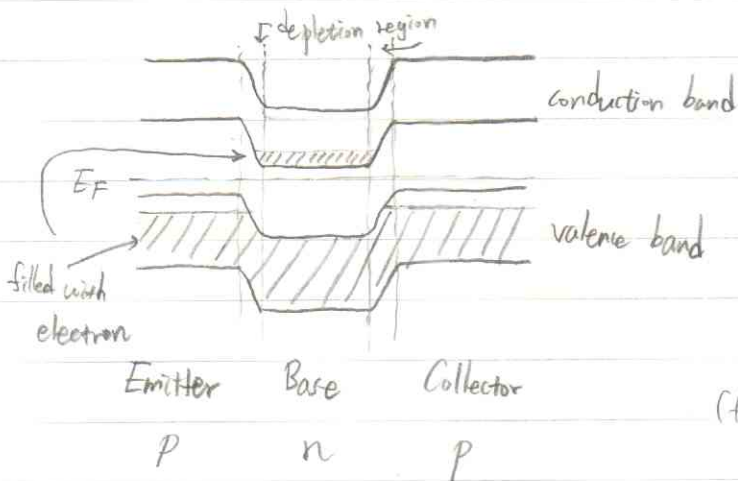 depletion region
conduction band
E_F
valence band
filled with
electron
Emitter Base Collector
p n p